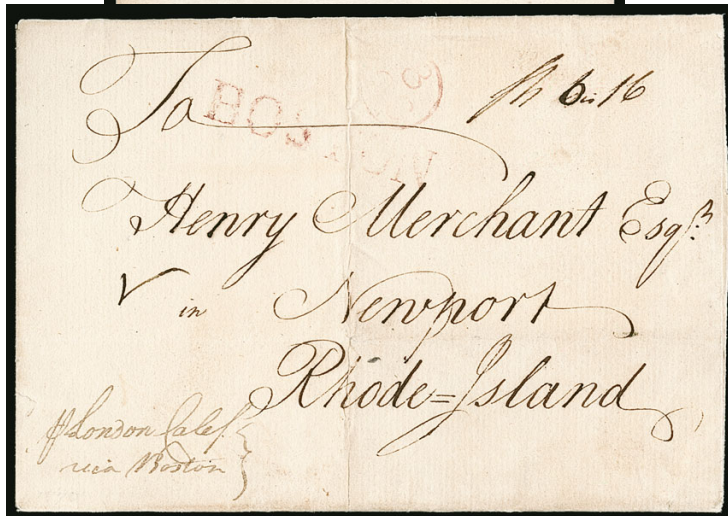 To
BOSTON
Sh 6 " 16
Henry Merchant Esqr.
in Newport
Rhode=Island
London Calef
via Boston